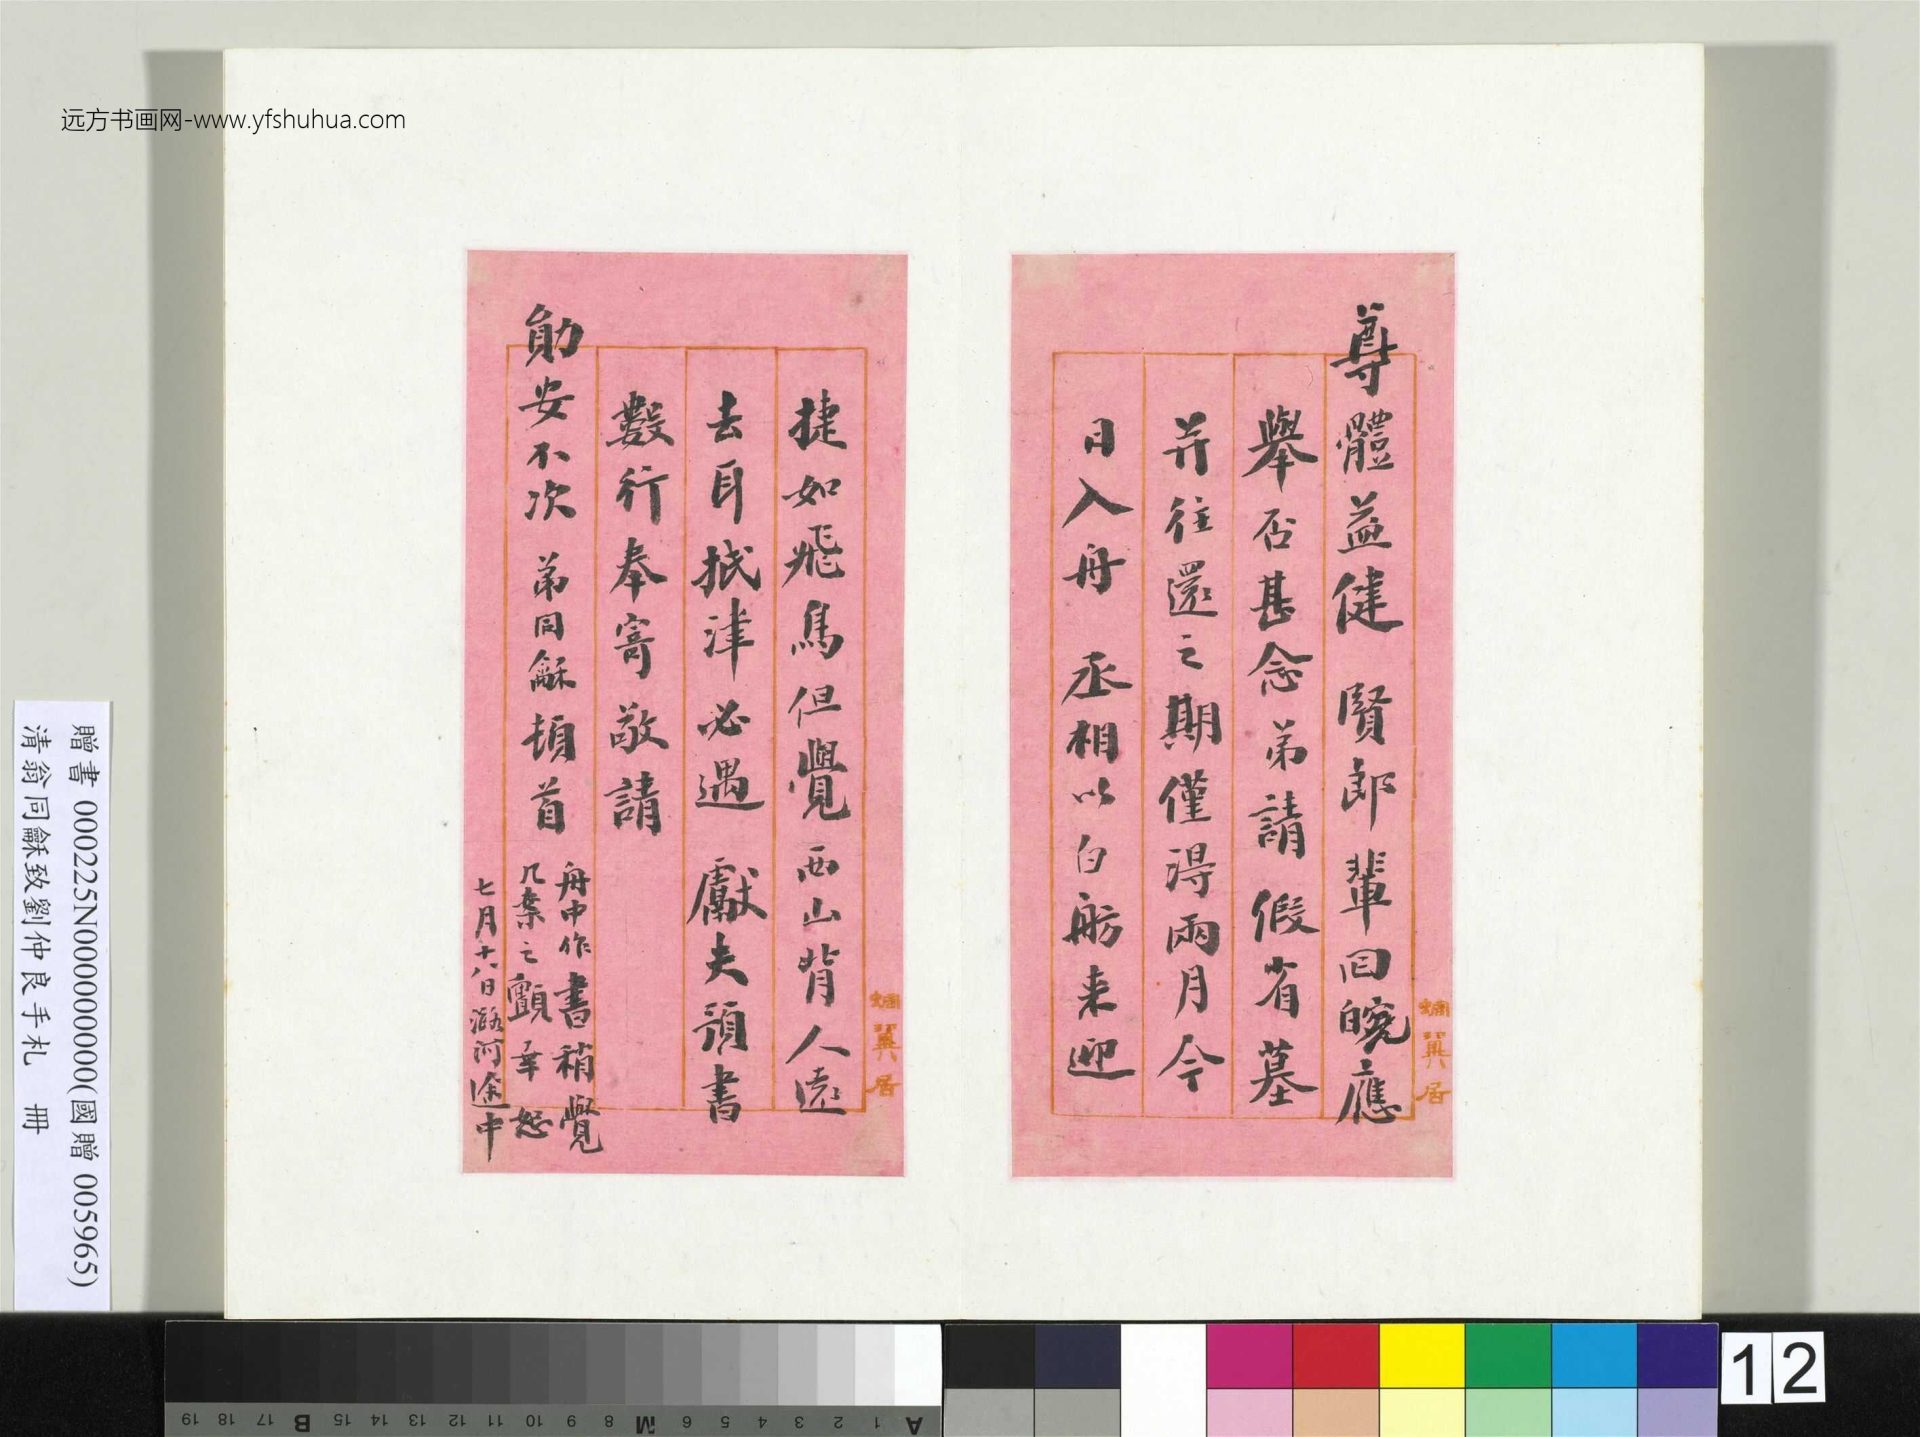 远方书画网-www.yfshuhua.com
尊體益健 賢郎輩回皖應
舉否甚念弟請假省墓
并往還之期僅得兩月今
日入舟 丞相以白舫来迎
翼居
捷如飛鳥但覺西山背人遠
去耳抵津必遇 獻夫預書
數行奉寄敬請
勛安不次 弟同龢頓首
舟中作書稍覺
几案之顫幸恕
七月十八日潞河途中
翼居
贈書 000225N000000000(國贈 005965)
清翁同龢致劉仲良手札 冊
A 1 2 3 4 5 6 M 8 9 10 11 12 13 14 15 B 17 18 19
12